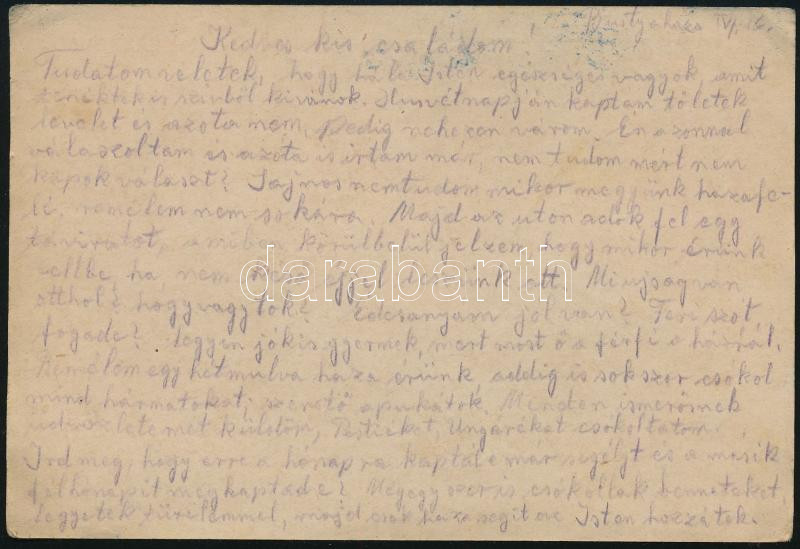 Bustyaháza IV/16.
Kedves kis családom!
Tudatom veletek, hogy hála Isten egészséges vagyok, amit
tinéktek is szivből kivánok. Husvétnapján kaptam tőletek
levelet és azota nem, Pedig nehezen várom. Én azonnal
válaszoltam és azóta is irtam már, nem tudom mért nem
kapok választ? Sajnos nemtudom mikor megyünk hazafe-
lé, remélem nem sokára. Majd az uton adok fel egy
táviratot, amiben körülbelül jelzem, hogy mikor érünk
ha nem éjjel leszünk ott. Mi ujság van
otthol? hogy vagytok? Édesanyám jól van? Teri szót
fogade? legyen jókis gyermek, mert most ő a férfi a háznál.
Remélem egy hét mulva haza érünk, addig is sokszor csókol
mind hármatokat, szerető apukátok. Minden ismerősnek
üdvözletemet küldöm, Pestieket, Ungáréket csókoltatom.
Ird meg, hogy erre a hónapra kaptál e már segélyt és a másik
félhónapit megkaptade? Mégegyszer is csókollak benneteket,
legyetek türelemmel, majd csak haza segit az Isten hozzátok.
darabanth